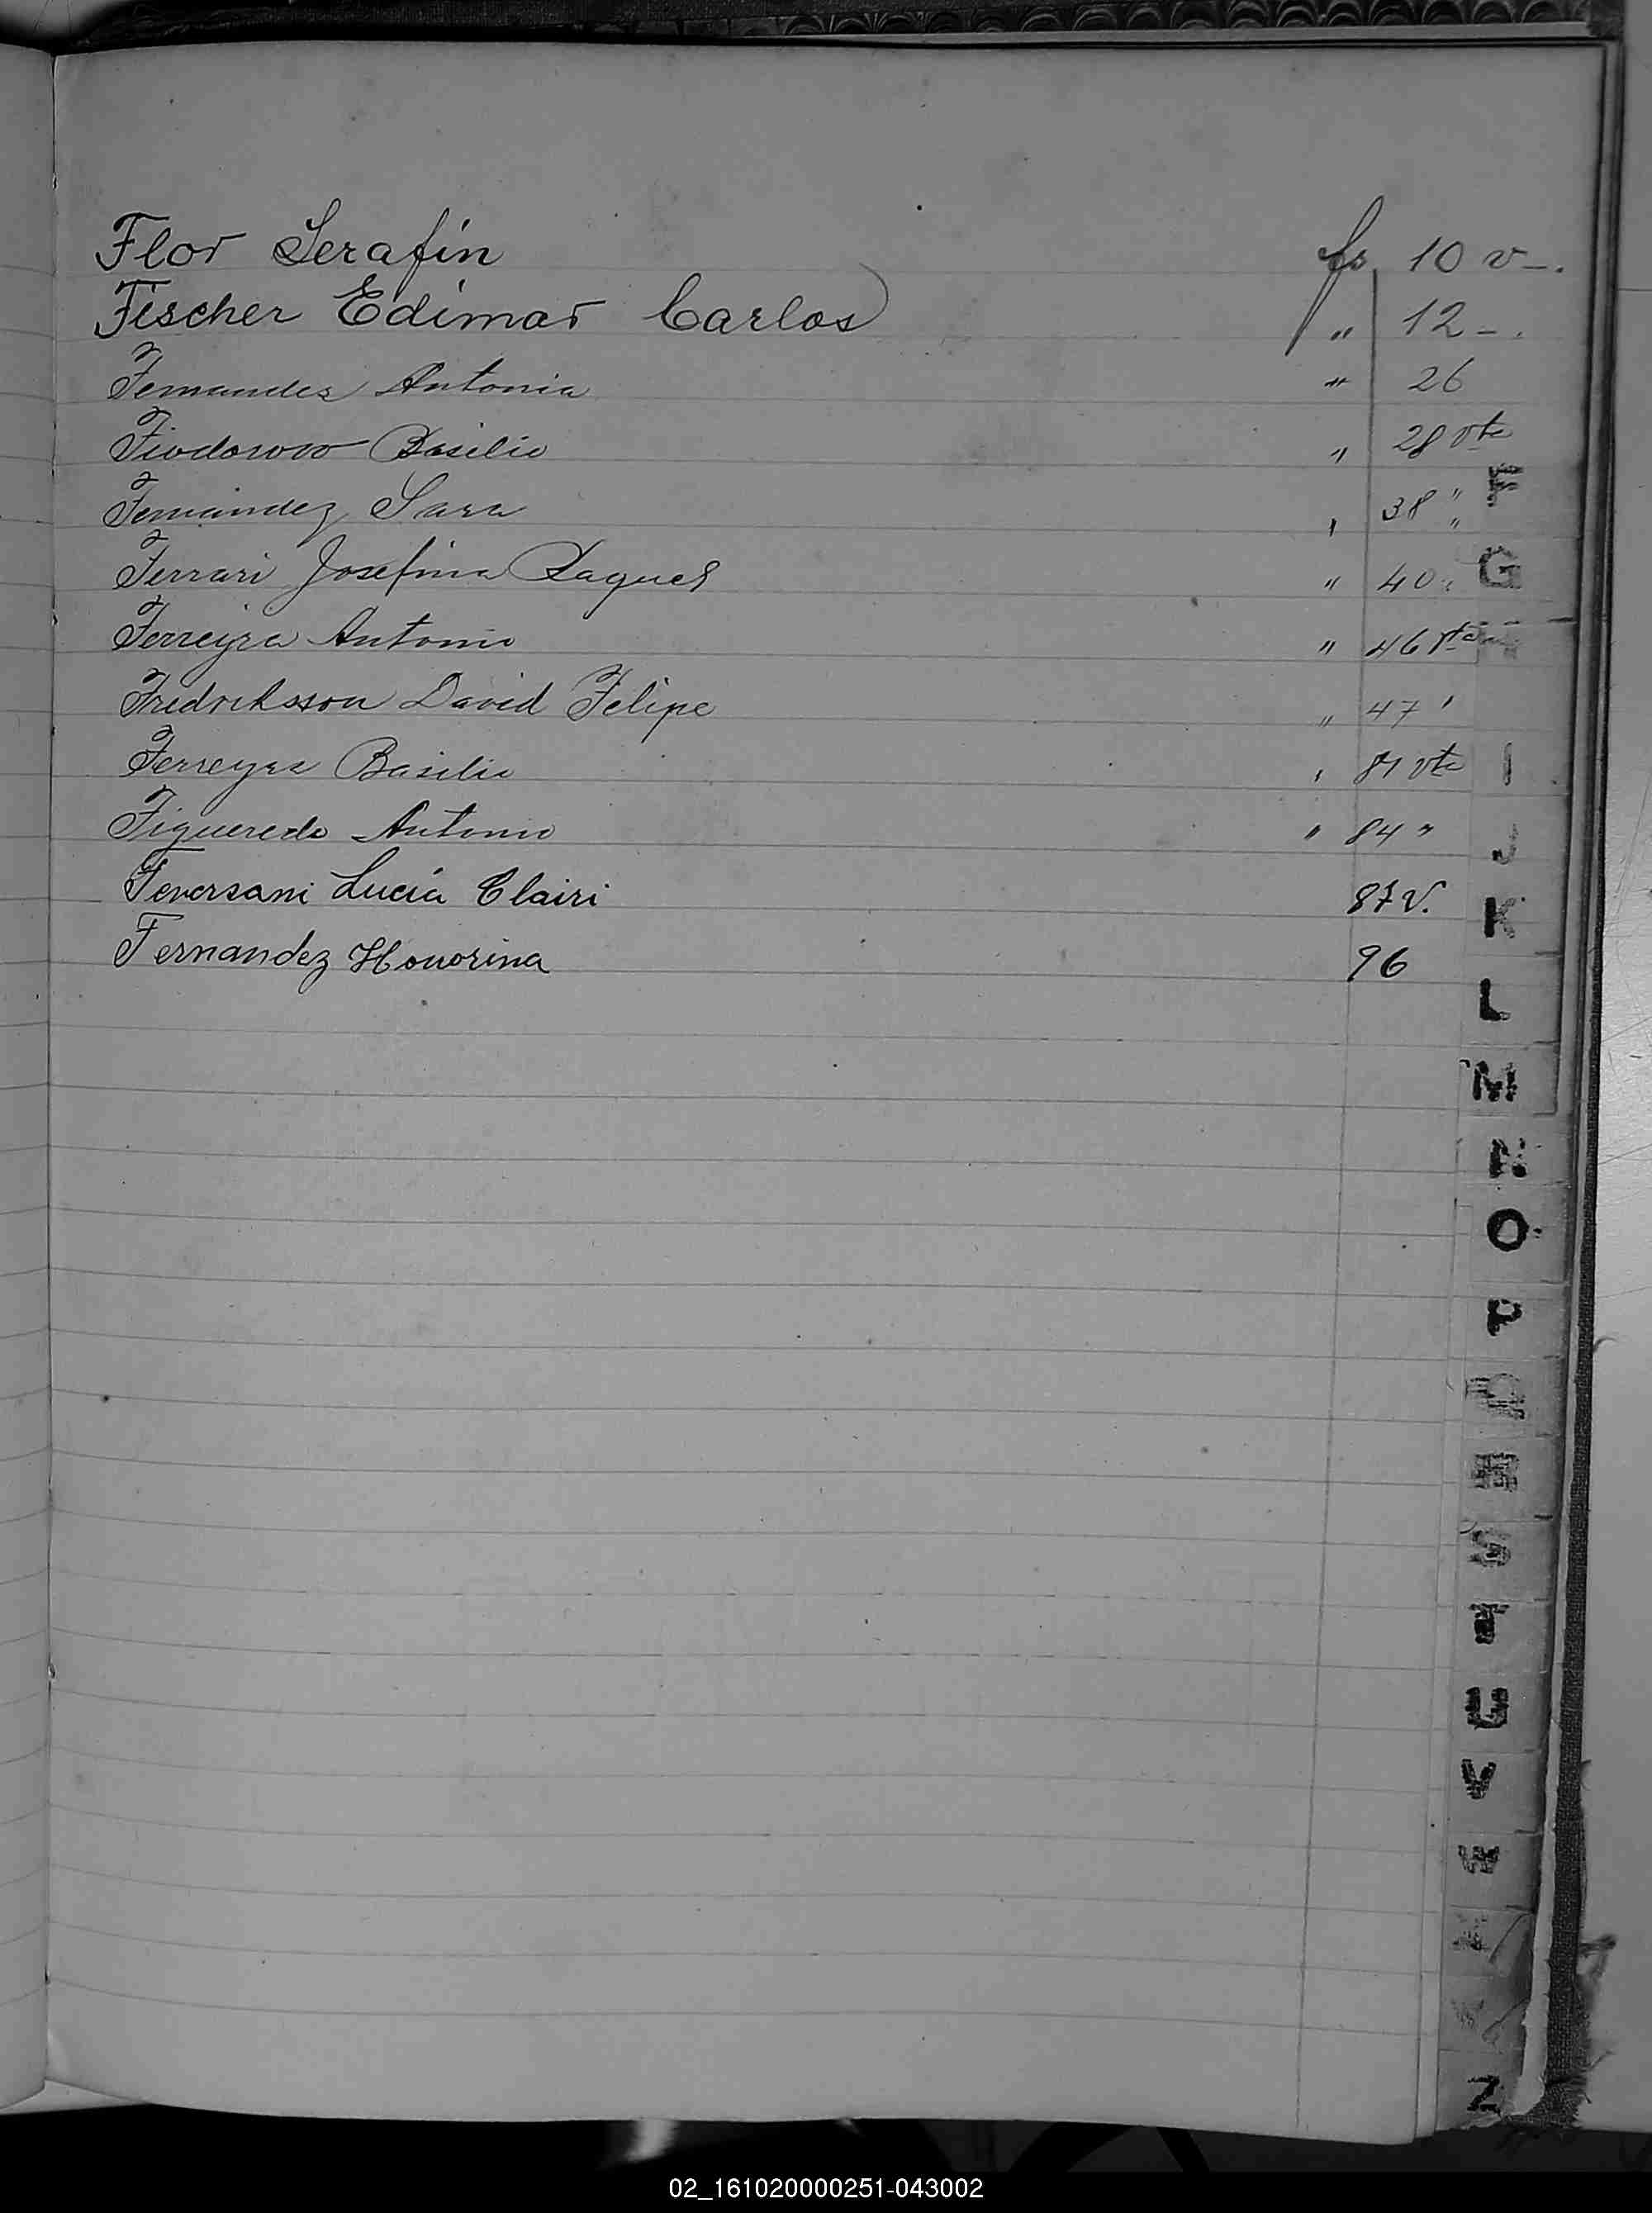 Flor Serafín fs 10 v-.
Fischer Edimar Carlos " 12-.
Fernandez Antonia " 26
Fiodorow Basilio " 28 vta
Fernández Sara " 38 "
Ferrari Josefina Raquel " 40 "
Ferreyra Antonio " 46 vta
Fredriksson David Felipe " 47 "
Ferreyra Basilio " 81 vta
Figueredo Antonio " 84 "
Feversani Lucía Clairi 87 v.
Fernandez Honorina 96
F
G
I
J
K
L
M
N
O
P
Q
R
S
T
U
V
W
Z
02_161020000251-043002